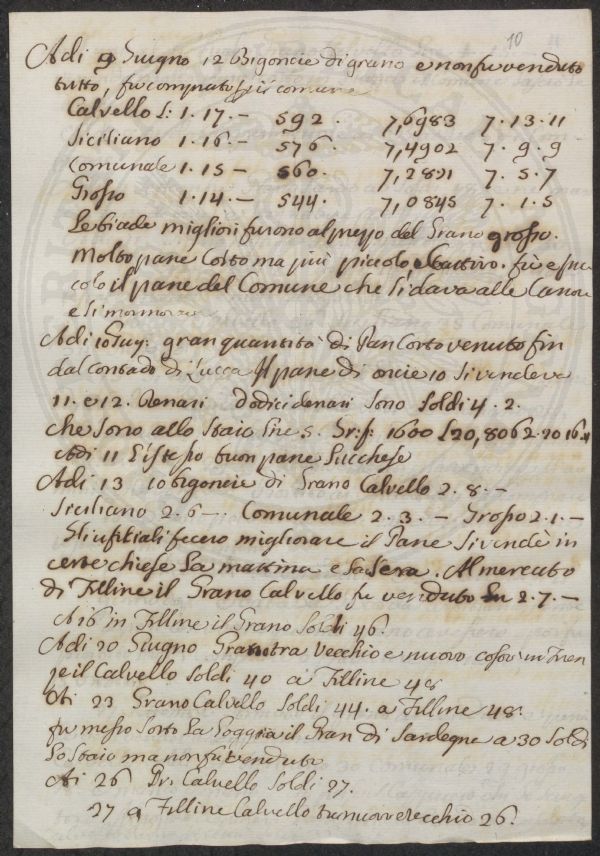 10
Adi 9 Giugno 12 Bigoncie di grano e non fu venduto
tutto, fu compratu
Calvello £: 1. 17. — 592. 7,6983 7. 13. 11
Siciliano 1. 16. — 576. 7,4902 7. 9. 9
Comunale 1. 15 — 560. 7,2821 7. 5. 7
Grosso 1. 14. — 544. 7,0845 7. 1. 5
Le biade migliori furono al prezzo del Grano grosso.
Molto pane Cotto ma più piccolo, e Cattivo. fu e pic
colo il pane del Comune che si dava alle Canove
e si mormorava
Adi 10 Giug: gran quantità di Pan Cotto venuto fin
dal contado di Lucca Il pane di oncie 10 si vendeva
11. e 12. Denari Dodici denari sono Soldi 4. 2.
che sono allo Staio 1600 £20,8062. 20 16.
Adi 11 l'istesso buon pane Lucchese
Adi 13 10 bigoncie di Grano Calvello 2. 8. —
Siciliano 2. 6 — Comunale 2. 3. — Grosso 2. 1. —
Gli ufitiali fecero migliorare il Pane si vendè in
certe chiese La mattina e la Sera. Al mercato
di Filline il Grano Calvello fu venduto 2. 7. —
A 16 in Filline il Grano Soldi 46.
Adi 20 Giugno Gran tra vecchio e nuovo in Firen
ze il Calvello Soldi 40 a Filline 48
Ai 23 Grano Calvello Soldi 44. a Filline 48.
fu messo sotto La Loggia il Gran di Sardegna a 30 Soldi
Lo Staio ma non fu venduto
Ai 26 Gr. Calvello Soldi 27.
27 a Filline Calvello tra nuov e vecchio 26.